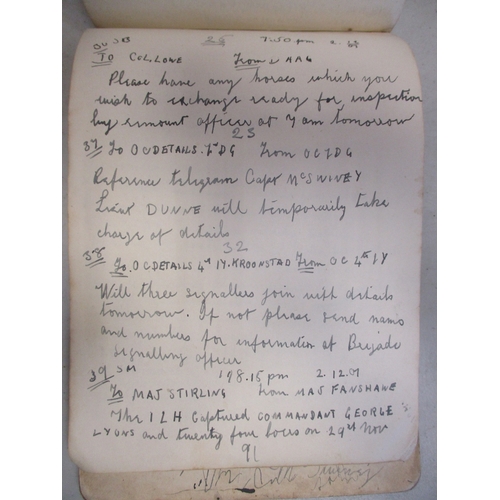 SB 25 7.50 pm
To COL. LOWE From
Please have any horses which you
wish to exchange ready for inspection
by remount officer at 7 am tomorrow
25
37 To OC DETAILS 7th DG From OC 7DG
Reference telegram Capt McSWINEY
Lieut DUNNE will temporarily take
charge of details
32
38 To. OC DETAILS 4th IY. KROONSTAD From OC 4th IY
Will three signallers join with details
tomorrow. If not please send names
and numbers for information of Brigade
signalling officer
39 SM 198.15 pm 2.12.01
To MAJ STIRLING from MAJ FANSHAWE
The ILH captured COMMANDANT GEORGE
LYONS and twenty four boers on 29th Nov
91